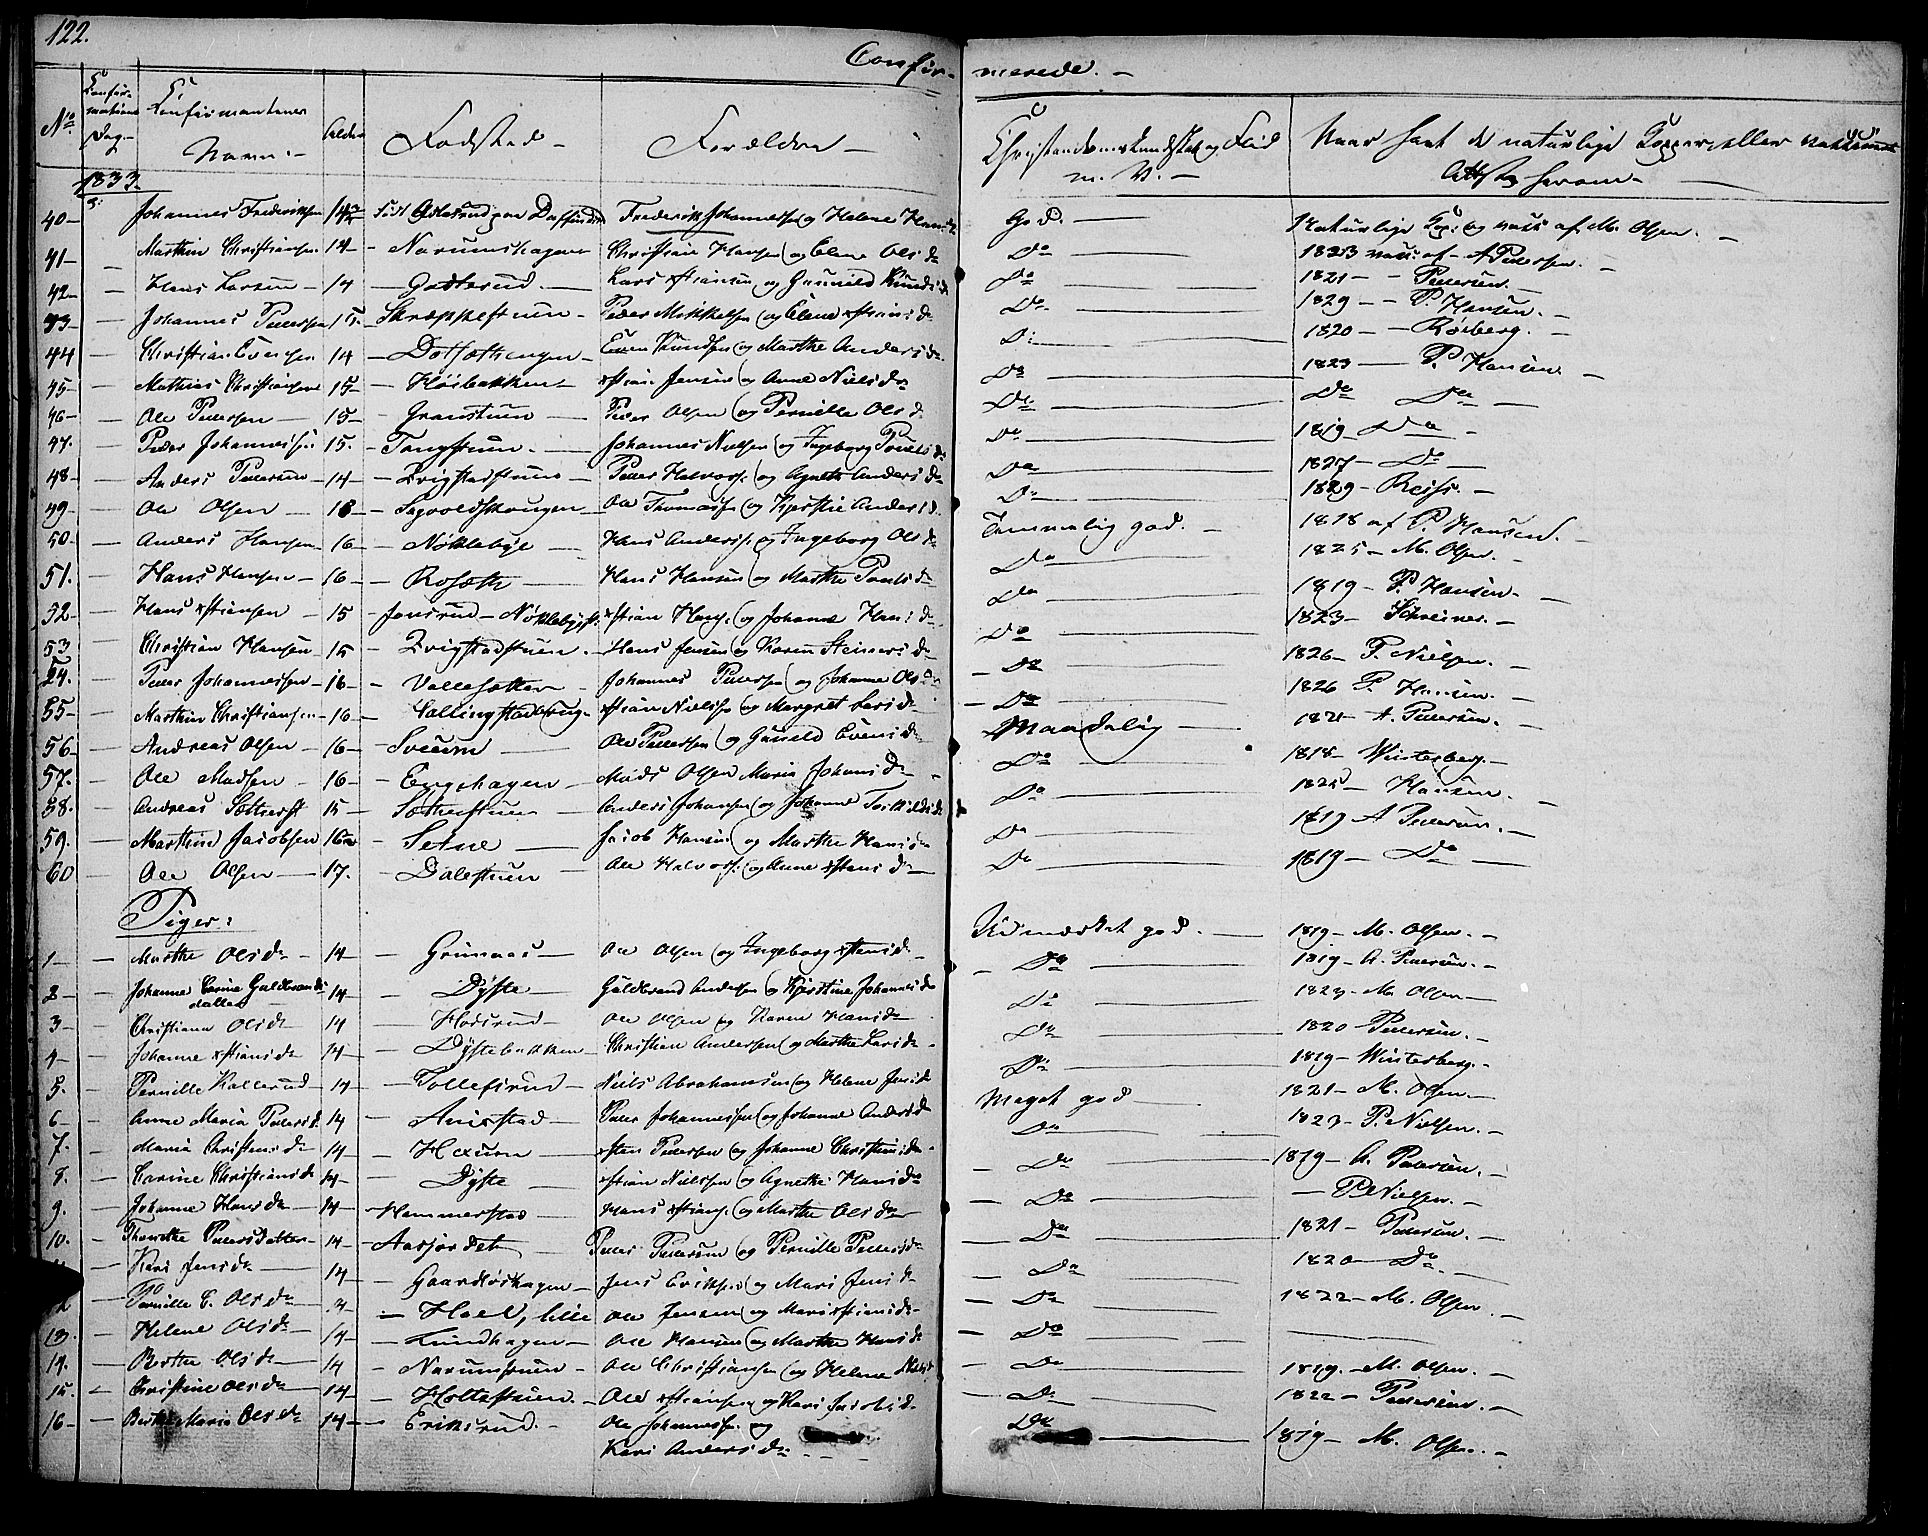 122.
Confir- merede.
No Confirmations Dag Confirmantenes Navn Alder Fødsted Forældre Christendomskundskab og Flid m. V. Naar havt de naturlige Kopper eller vakcineret Attest herom
1833
40 Johannes Frederiksen 14 Frederik Johannessen og Helene God. Naturlige Kop: og af M. Olsen.
41 Marthin Christiansen 14 Narumshagen Christian Hansen og Elene Ols d. Do 1823 vacc: af A Pedersen.
42 Hans Larsen 14 Gaderud Lars xstiansen og Gunnild Knuds d. Do 1821 Pedersen.
43 Johannes Pedersen 15 Skreppestuen Peder Mikkelsen og Elene xstians d. Do 1829 P. Hansen.
44 Christian Evensen 14 Even Knudsen og Marthe Anders d. Do 1820 Røsberg.
45 Mathias Christiansen 15 Høibakken xstian Jensen og Anne Niels d. Do 1823 P. Hansen.
46 Ole Pedersen 15 Granstuen Peder Olsen og Pernille Ols d. Do Do Do
47 Peder Johannessen 15 Tangstuen Johannes Nielsen og Ingeborg Pouels d. Do 1819 Do
48 Anders Pedersen 14 Peder Halvors. og Agnethe Anders d. Do 1827 Do
49 Ole Olsen 18 Ole Thomass. og Kjersti Anders d. Do 1829 Reiss.
50 Anders Hansen 16 Nøklebye Hans Anderss. og Ingeborg Ols d. Temmelig god. 1818 af P. Hansen.
51 Hans Hansen 16 Rosæth Hans Hansen og Marthe Pouls d. Do 1825 M. Olsen.
52 Hans xstiansen 15 Jonsrud Nøklebyst. xstian Hans. og Johanne Hans d. Do 1819 P. Hansen.
53 Christian Hansen 15 Hans Jensen og Karen Steiners d. Do 1823 Schreiner.
54 Peder Johannessen 16 Vallesætter Johannes Pedersen og Johanne Ols d. Do 1826 P. Nielsen.
55 Marthin Christiansen 16 xstian Nielss. og Margret Lars d. Do 1826 P. Hansen.
56 Andreas Olsen 16 Sveum Ole Pedersen og Gunild Evens d. Maadelig 1821 A. Pedersen.
57 Ole Madsen 16 Engehagen Mads Olsen Maria Johans d. Do 1818 Winterberg.
58 Andreas 15 Sætherstuen Anders Johansen og Johanne Torkilds d. Do 1825 Hansen.
59 Marthin Jacobsen 16 Setne Jacob Hansen og Marthe Hans d. Do 1819 A Pedersen.
60 Ole Olsen 17 Dalestuen Ole Halvors. og Anne xstens d. Do 1819 Do
Piger:
1 Marthe Ols d. 14 Grimaas Ole Olsen og Ingeborg xstens d. Udmærket god. 1819 M. Olsen.
2 Johanne Carine Guldbrands datter 14 Dyste Guldbrand Andersen og Kjerstine Johannes d. Do 1819 A. Pedersen.
3 Christiane Ols d. 14 Ole Olsen og Karen Hans d. Do 1823 M. Olsen
4 Johanne xstians d. 14 Dystebakken Christian Andersen og Marthe Lars d. Do 1820 Pedersen.
5 Pernille Kallerud 14 Tollefsrud Niels Abrahamsen og Helene Jens d. Do 1819 Winterberg.
6 Anne Maria Peders d. 14 Anistad Peder Johannessen og Johanne Anders d. Meget god 1821 M. Olsen.
7 Maria Christens d. 14 Hexum xsten Pedersen og Johanne Christens d. Do 1823 P. Nielsen.
8 Carine Christians d. 14 Dyste xstian Nielsen og Agnethe Hans d. Do 1819 A. Pedersen.
9 Johanne Hans d. 14 Hammerstad Hans xstians. og Marthe Ols d. Do P Nielsen.
10 Thorvthe Peders datter 14 Aasjordet Peder Pedersen og Pernille Peders d. Do 1821 Pedersen.
Kari Jens d. 14 Gaardløshagen Jens Eriksen og Mari Jens d. Do 1820 Do
12 Pernille C. Ols d. Hoel, lille Ole Jensen og Mari xstians d. Do 1822 M. Olsen
13 Helene Ols d. 14 Lundhagen Ole Hansen og Marthe Hans d. Do
14 Berthe Ols d. 14 Narumstuen Ole Christiansen og Helene Do 1819 M. Olsen.
15 Christine Ols d. 14 Holtestuen Ole xstiansen og Kari Jacobs d. Do 1822 Pedersen.
16 Berthe Maria Ols d. 14 Eriksrud Ole Johanness. og Do 1819 M. Olsen.
Kari Anders d.